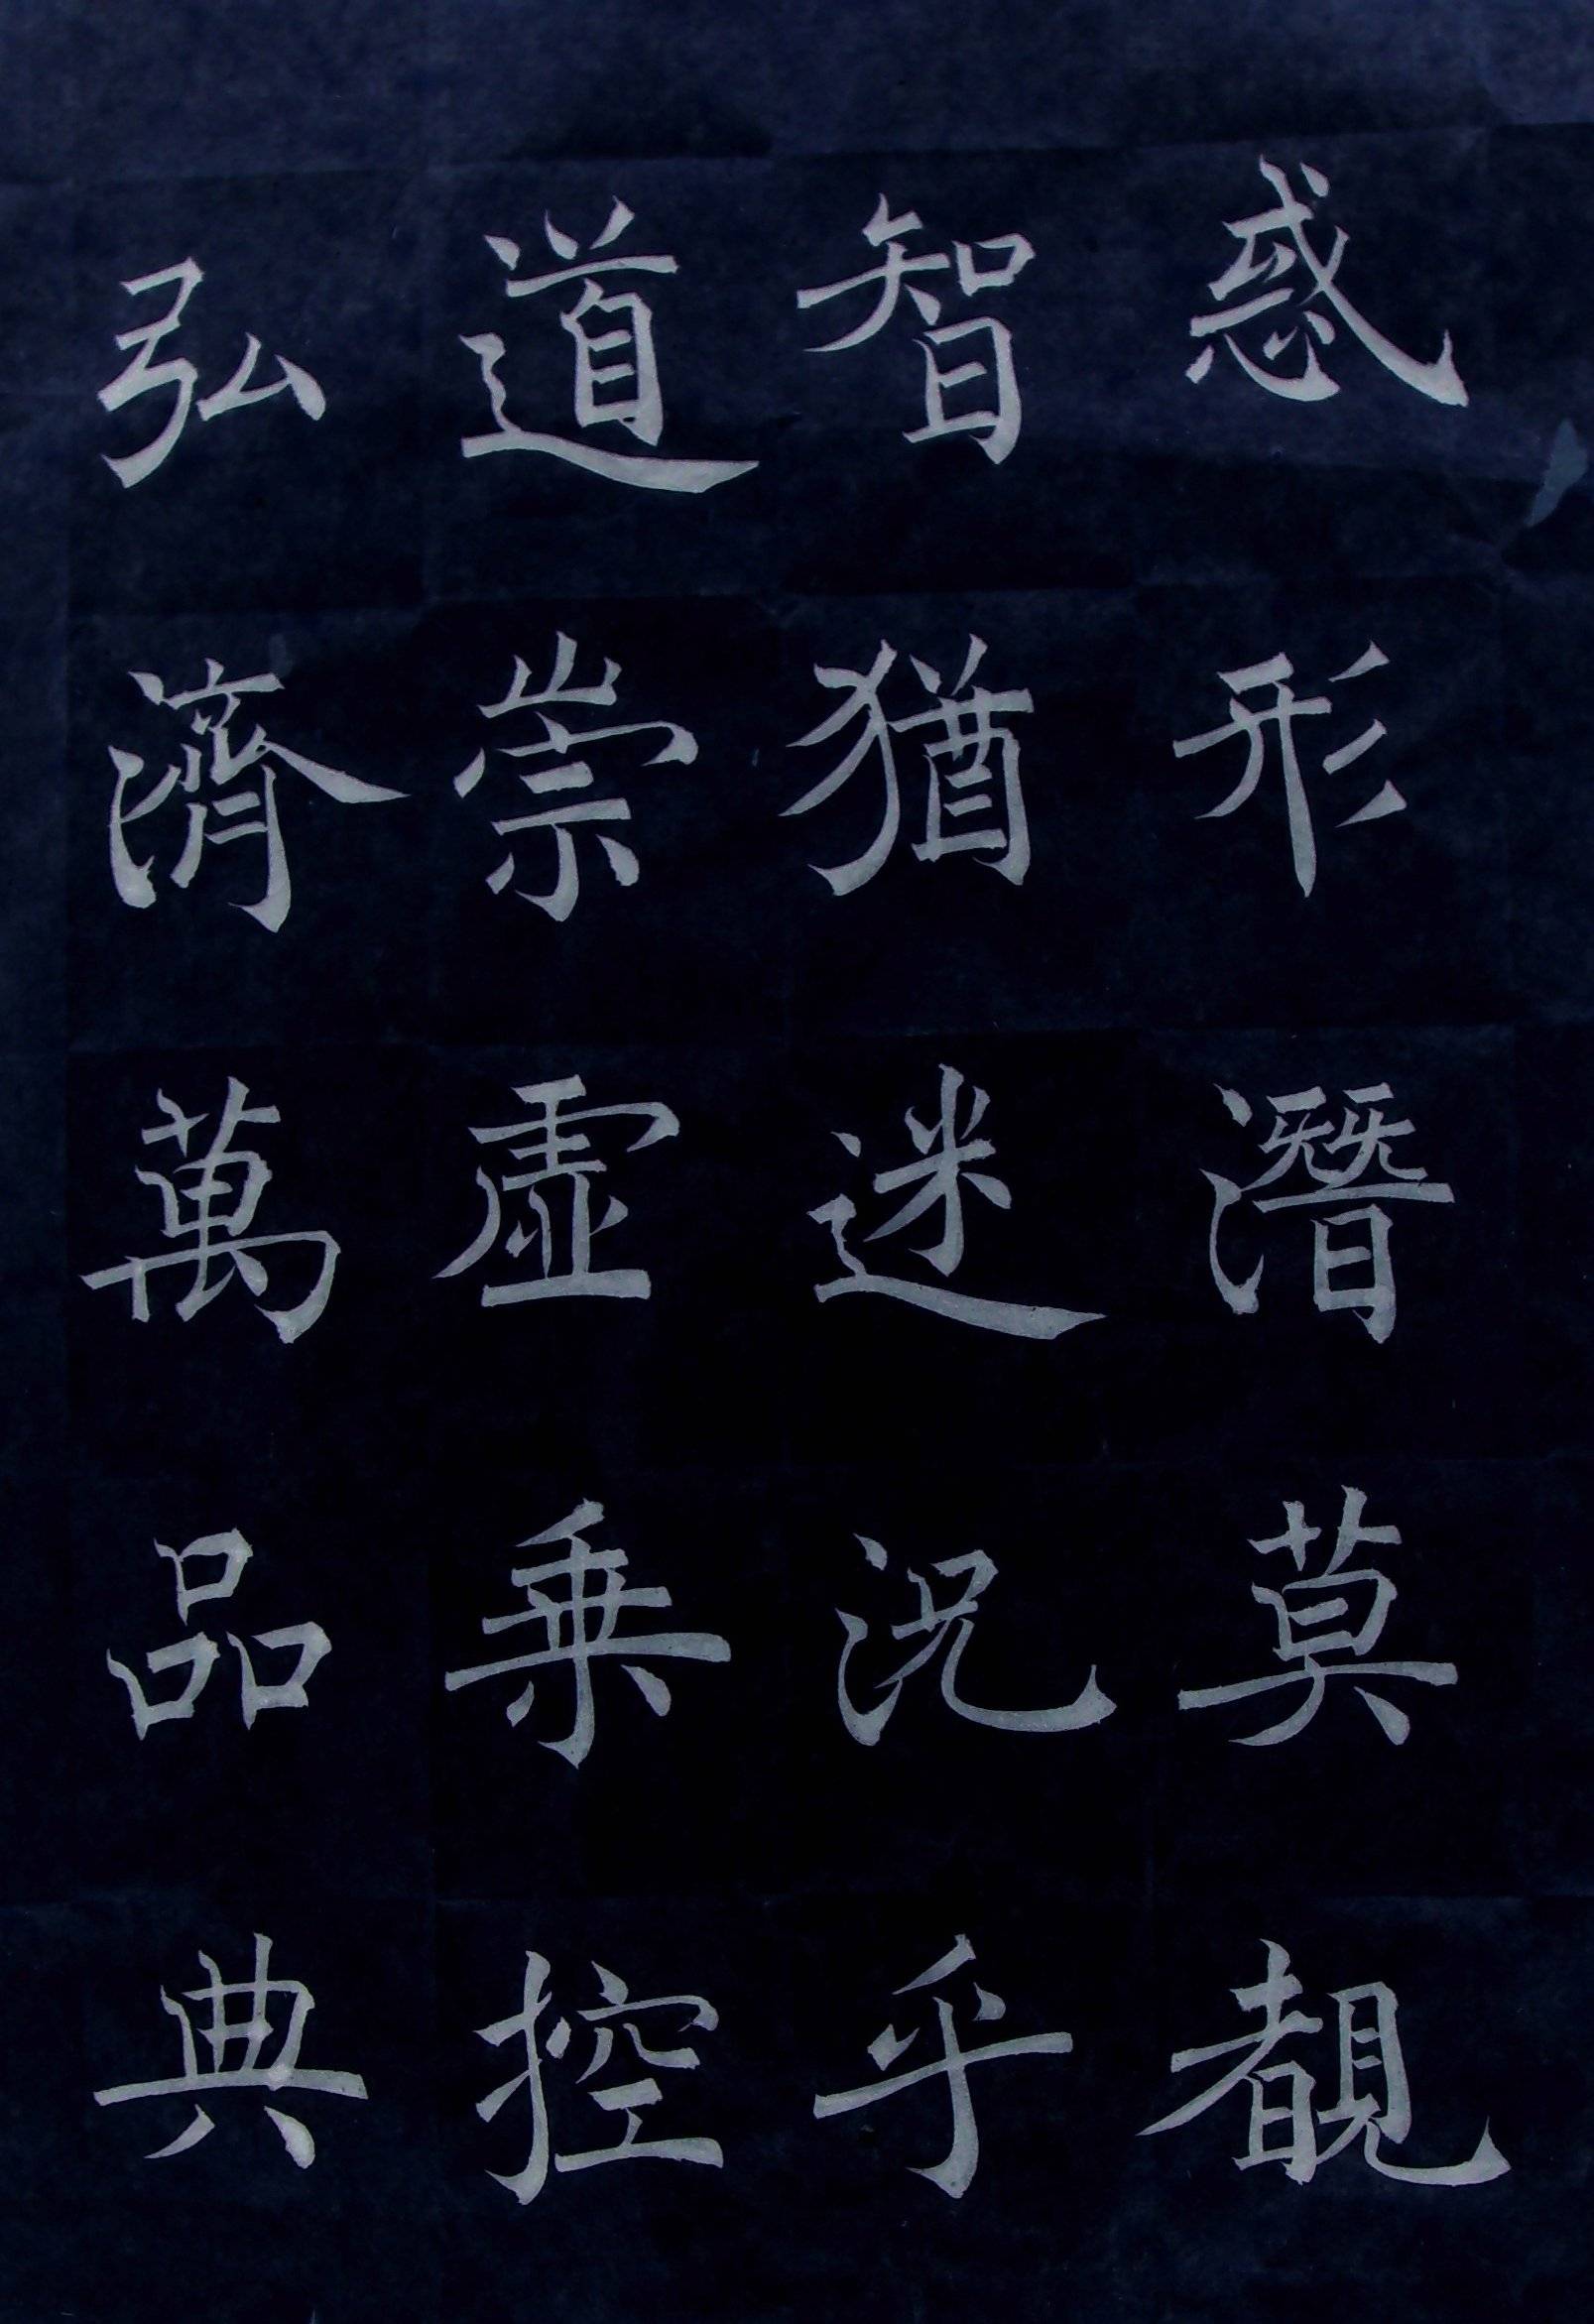 惑形潛莫覩
智猶迷況乎
道崇虛乗控
弘濟萬品典